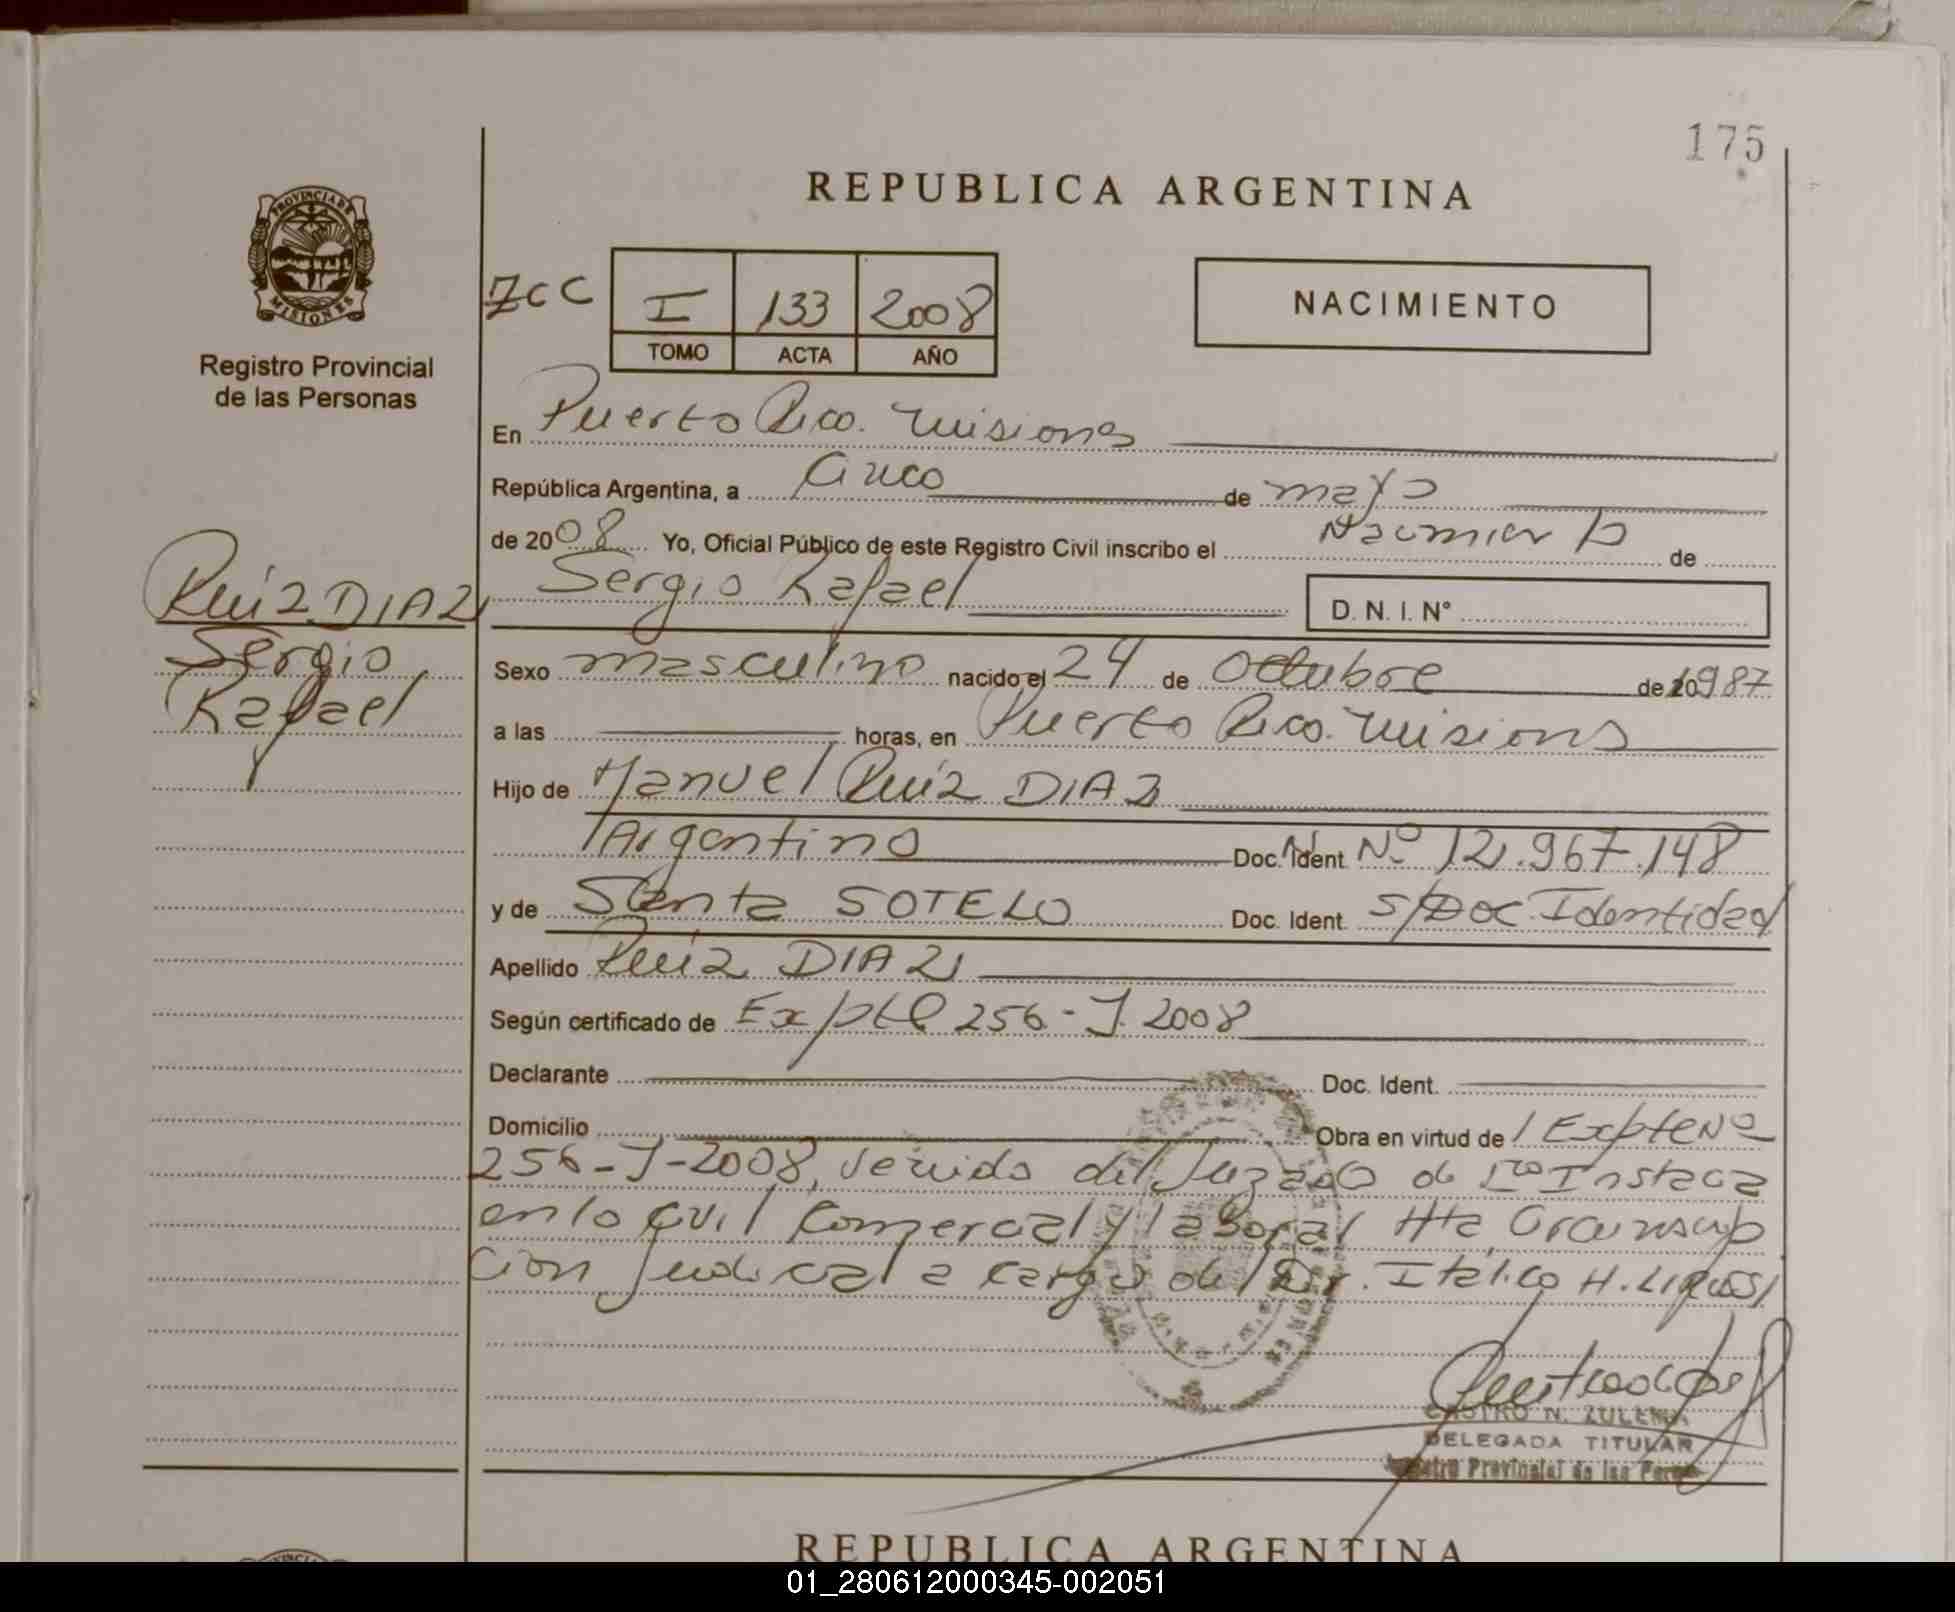 175
REPUBLICA ARGENTINA
PROVINCIA DE
MISIONES
Registro Provincial
de las Personas
ZCC I 133 2008
TOMO ACTA AÑO
NACIMIENTO
En Puerto Rico. Misiones
República Argentina, a Cinco de mayo
de 2008 Yo, Oficial Público de este Registro Civil inscribo el de
Sergio Rafael D. N. I. N°
Ruíz DIAZ
Sergio
Rafael
Sexo masculino nacido el 24 de Octubre de 1987
a las horas, en Puerto Rico. Misions
Hijo de Manuel Ruíz DIAZ
Argentino Doc. Ident. N° 12.967.148
y de Santa SOTELO Doc. Ident. S/Doc. Identidad
Apellido Ruíz DIAZ
Según certificado de Expte 256-J. 2008
Declarante Doc. Ident.
Domicilio Obra en virtud de Expte Nº
256-J-2008, venido del Juzgado de Instacia
en lo Civil Comercial y laboral 4ta Circunscrip
cion Judicial a cargo del Dr. Italico H.
CASTRO N. ZULEMA
DELEGADA TITULAR
Registro Provincial de las Personas
REPUBLICA ARGENTINA
01_280612000345-002051